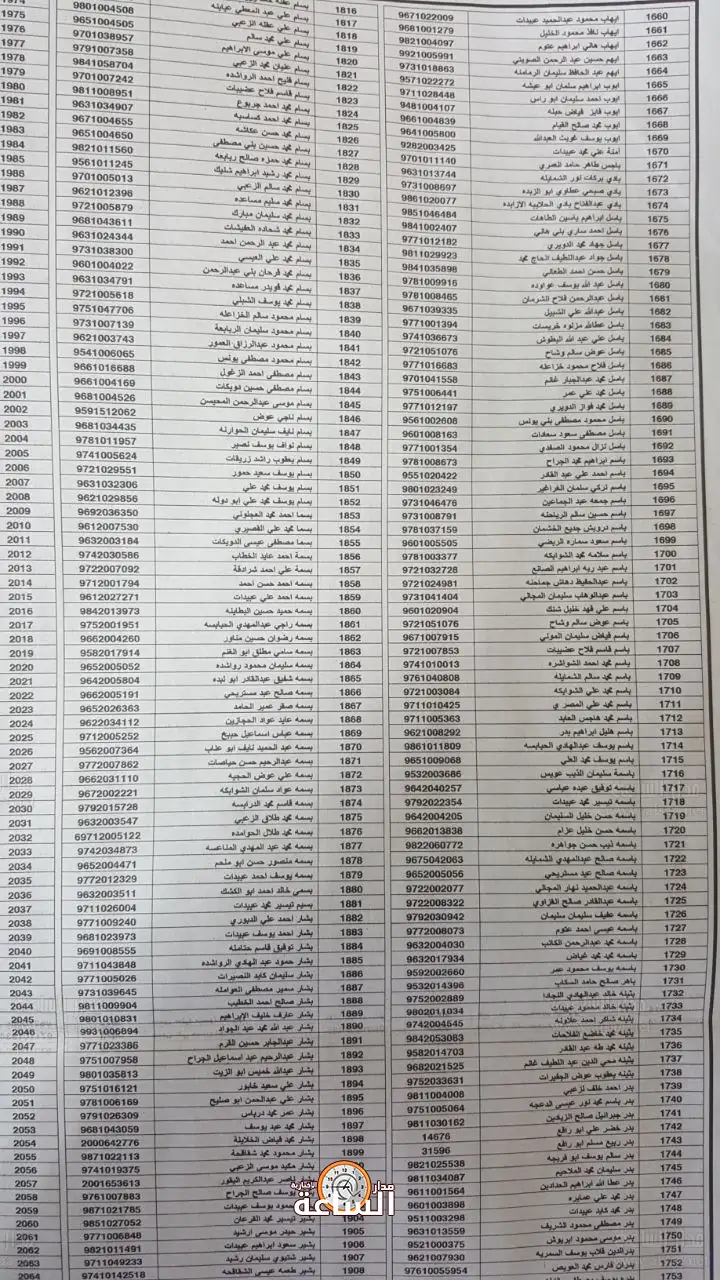 1660 ايهاب محمود عبدالحميد عبيدات 9671022009
1661 ايهاب نافذ محمود الخليل 9681001279
1662 ايهاب هاني ابراهيم عتوم 9821004097
1663 ايهم حسين عبد الرحمن الصويتي 9921005991
1664 ايهم عبد الحافظ سليمان الرمامنه 9731018863
1665 ايوب ابراهيم سلمان ابو عيشه 9571022272
1666 ايوب احمد سليمان ابو راس 9711028448
1667 ايوب فايز فياض حيله 9481004107
1668 ايوب محمد صالح القيام 9661004839
1669 ايوب يوسف غويث العبدالله 9641005800
1670 آمنة علي محمد عبيدات 9282003425
1671 باجس طاهر حامد العمري 9701011140
1672 بادي بركات نور الشمايله 9631013744
1673 بادي صبحي عطاوي ابو الزيده 9731008697
1674 بادي عبدالفتاح بادي الحلايبه الازايده 9861020077
1675 باسل ابراهيم ياسين الطاهات 9851046484
1676 باسل احمد ساري بني هاني 9841002407
1677 باسل جهاد محمد الدويري 9771012182
1678 باسل جواد عبداللطيف الحاج محمد 9811029923
1679 باسل حسن احمد الطعاني 9841035898
1680 باسل عبد الله يوسف عواوده 9781009916
1681 باسل عبدالرحمن فلاح الشرمان 9781008465
1682 باسل عبدالله علي الشبيل 9671039335
1683 باسل عطالله مزلوه خريسات 9771001394
1684 باسل علي عبد الله البطوش 9741036673
1685 باسل عوض سالم وشاح 9721051076
1686 باسل فلاح محمود خزاعله 9771016683
1687 باسل محمد عبدالجبار غانم 9701041558
1688 باسل محمد علي عمر 9751006441
1689 باسل محمد فواز الدويري 9771012197
1690 باسل محمود مصطفى بني يونس 9561002608
1691 باسل مصطفى سعود سعادات 9601008163
1692 باسل نزال محمود الصفدي 9771001354
1693 باسم ابراهيم محمد الجراح 9781008673
1694 باسم احمد علي عبد القادر 9551020422
1695 باسم تركي سلمان الفراغير 9801023249
1696 باسم جمعه عبد الجماعين 9731046476
1697 باسم حسين سالم الرياحنه 9731008791
1698 باسم درويش جديع الخشمان 9781037159
1699 باسم سعود سماره الربضي 9601005505
1700 باسم سلامه محمد الشوابكه 9781003377
1701 باسم عبد ربه ابراهيم الصانع 9721032728
1702 باسم عبدالحفيظ دهاش جماحنه 9721024981
1703 باسم عبدالوهاب سليمان المجالي 9731041404
1704 باسم علي فهد خليل شلك 9601020904
1705 باسم عوض سالم وشاح 9721051076
1706 باسم فياض سليمان المومني 9671007915
1707 باسم قاسم فلاح عضيبات 9721007853
1708 باسم محمد احمد الشواشره 9741010013
1709 باسم محمد سالم الشمايله 9761040808
1710 باسم محمد علي الشوابكه 9721003084
1711 باسم محمد علي المصري 9711010425
1712 باسم محمد هاجس العابد 9711005363
1713 باسم هليل ابراهيم بدر 9621008292
1714 باسم يوسف عبدالهادي الحبايسه 9861011809
1715 باسم يوسف محمد العلي 9651009068
1716 باسمة سليمان الذيب عويس 9532003686
1717 باسمه توفيق عبده عباسي 9642040257
1718 باسمه تيسير محمد عبيدات 9792022354
1719 باسمه حسن خليل السليمان 9642004205
1720 باسمه حسن خليل عزام 9662013838
1721 باسمه ذيب حسن جواهره 9822060772
1722 باسمه صالح عبدالمهدي الشمايله 9675042063
1723 باسمه صالح عيد مستريحي 9652005056
1724 باسمه عبدالحميد نهار المجالي 9722002077
1725 باسمه عبدالقادر صالح الغزاوي 9722008322
1726 باسمه عفيف سليمان سليمان 9792030942
1727 باسمه عيسى احمد عتوم 9772008073
1728 باسمه محمد عبدالرحمن الكاتب 9632004030
1729 باسمه محمد محمد غياض 9632017934
1730 باسمه يوسف محمود عمر 9592002660
1731 باهر صالح حامد السكاب 9532014396
1732 بثينه خالد عبدالهادي النجادا 9752002889
1733 بثينه خالد محمود عبيدات 9802011034
1734 بثينه شاكر احمد علاونه 9742004545
1735 بثينه محمد خاضع الفلاحات 9842053083
1736 بثينه محمد طه عبد القادر 9582014703
1737 بثينه محي الدين عبد اللطيف غانم 9682021525
1738 بثينه يعقوب عوض الجفيرات 9752033631
1739 بدر احمد خلف لزعبي 9811004008
1740 بدر باسم محمد نور عيسى الدعجه 9751005064
1741 بدر جبرائيل صالح الزيادين 9811030162
1742 بدر خضر علي ابو رافع 14676
1743 بدر ربيع مسلم ابو رافع 31596
1744 بدر سالم يوسف ابو فريجه 9821025538
1745 بدر سليمان محمد الملاحيم 9811034087
1746 بدر عطا الله ابراهيم الحدادين 9611001564
1747 بدر محمد علي عمايره 9601003898
1748 بدر محمد كايد عبيدات 9511003298
1749 بدر مصطفى محمود الشريف 9631013559
1750 بدر موسى محمود ابريوش 9521000375
1751 بدرالدين قلاب يوسف السمريه 9621007930
1752 بدران فارس محمد العويص 97610055954
1753
1816
1817 بسام علي عبد المعطي عبابنه 9801004508
1818 بسام علي عقله الزعبي 9651004505
1819 بسام علي محمد سالم 9701038957
1820 بسام علي موسى الابراهيم 9791007358
1821 بسام عليان محمد الزعبي 9841058704
1822 بسام فليح احمد الرواشده 9701007242
1823 بسام قاسم فلاح عضيبات 9811008951
1824 بسام محمد احمد جربوع 9631034907
1825 بسام محمد احمد كساسبه 9671004655
1826 بسام محمد حسن عكاشه 9651004650
1827 بسام محمد حسين بني مصطفى 9821011560
1828 بسام محمد حمزه صالح ربابعه 9561011245
1829 بسام محمد رشيد ابراهيم شليك 9701005013
1830 بسام محمد سالم الزعبي 9621012396
1831 بسام محمد سليم مساعده 9721005879
1832 بسام محمد سليمان مبارك 9681043611
1833 بسام محمد شحاده العفيشات 9631024344
1834 بسام محمد عبد الرحمن احمد 9731038300
1835 بسام محمد علي العيسي 9601004022
1836 بسام محمد فرحان بني عبدالرحمن 9631034791
1837 بسام محمد قويدر مساعده 9721005618
1838 بسام محمد يوسف الشبلي 9751047706
1839 بسام محمود سالم الخزاعله 9731007139
1840 بسام محمود سليمان الربابعة 9621003743
1841 بسام محمود عبدالرزاق العمور 9541006065
1842 بسام محمود مصطفى يونس 9661016688
1843 بسام مصطفى احمد الزغول 9661004169
1844 بسام مصطفى حسين دويكات 9681004526
1845 بسام موسى عبدالرحمن المحيسن 9591512062
1846 بسام ناجي عوض 9681034435
1847 بسام نايف سليمان الحوارنه 9781011957
1848 بسام نواف يوسف نصير 9741005624
1849 بسام يعقوب راشد زريقات 9721029551
1850 بسام يوسف سعيد حمور 9631032306
1851 بسام يوسف محمد علي 9621029856
1852 بسام يوسف محمد علي ابو دوله 9692036350
1853 بسما احمد محمد العجلوني 9612007530
1854 بسما محمد علي القصيري 9632003184
1855 بسما مصطفى عيسى الدويكات 9742030586
1856 بسمة احمد عايد الخطاب 9722007092
1857 بسمة علي احمد شرادقة 9712001794
1858 بسمه احمد حسن احمد 9612027271
1859 بسمه احمد علي عبيدات 9842013973
1860 بسمه حميد حسين البطاينه 9752001951
1861 بسمه راجي عبدالمهدي الحبايسه 9662004260
1862 بسمه رضوان حسين مناور 9582017914
1863 بسمه سامي مطلق ابو الغنم 9652005052
1864 بسمه سليمان محمود رواشده 9642005804
1865 بسمه شفيق عبدالقادر ابو لبده 9662005191
1866 بسمه صالح عيد مستريحي 9652026363
1867 بسمه صقر عمير الحامد 9622034112
1868 بسمه عايد عواد الحجازين 9712005252
1869 بسمه عباس اسماعيل حبيج 9562007364
1870 بسمه عبد الحميد نايف ابو عناب 9772007862
1871 بسمه عبدالرحيم حسن حياصات 9662031110
1872 بسمه علي عوض الحجيه 9672002221
1873 بسمه عواد سلمان الشوابكه 9792015728
1874 بسمه قاسم محمد الدرابسه 9632003547
1875 بسمه محمد طلاق الزعبي 69712005122
1876 بسمه محمد طلال الحوامده 9742034873
1877 بسمه محمد عبد المهدي المناعسه 9652004471
1878 بسمه منصور حسن ابو ملحم 9772012329
1879 بسمه يوسف احمد عبيدات 9632003511
1880 بسمى خالد احمد ابو الكشك 9711026004
1881 بسيم تيسير محمد عبيدات 9771009240
1882 بشار احمد علي الديوري 9681023973
1883 بشار احمد يوسف عبيدات 9691008555
1884 بشار توفيق قاسم حتامله 9711043848
1885 بشار حمود عبد الهادي الرواشده 9771005026
1886 بشار سليمان كايد النصيرات 9731039645
1887 بشار سمير مصطفى العوامله 9811009904
1888 بشار صالح احمد الخطيب 9801010831
1889 بشار عارف خليف الابراهيم 9931006894
1890 بشار عبد الله محمد عبد الجواد 9771023386
1891 بشار عبدالجابر حسين القرم 9751007958
1892 بشار عبدالرحيم عبد اسماعيل الجراح 9801035813
1893 بشار عبدالله خميس ابو الزيت 9751016121
1894 بشار علي سعيد خابور 9781006169
1895 بشار علي عبدالمحسن ابو صليح 9791026309
1896 بشار عمر محمد درباس 9681043059
1897 بشار محمد عبد يوسف 2000642776
1898 بشار محمد فياض الخلايلة 9871022113
1899 بشار محمود محمد شقاقحة 9741019375
بشار مكيد موسى الزعبي 2001653613
ناصر عبدالكريم البقور 9761007883
يوسف صالح الجراح 9871021785
محمود يوسف عبيدات 9851027052
1904 بشير تيسير محمد القرعان 9771006848
1905 بشير حيدر موسى ارشيد 9821011491
1906 بشير سعود ابراهيم عبيدات 9711049233
1907 بشير شتيوي سليمان رشيد 97410142518
1908 بشير طعمه عيسى الشقاقحه
1974
1975
1976
1977
1978
1979
1980
1981
1982
1983
1984
1985
1986
1987
1988
1989
1990
1991
1992
1993
1994
1995
1996
1997
1998
1999
2000
2001
2002
2003
2004
2005
2006
2007
2008
2009
2010
2011
2012
2013
2014
2015
2016
2017
2018
2019
2020
2021
2022
2023
2024
2025
2026
2027
2028
2029
2030
2031
2032
2033
2034
2035
2036
2037
2038
2039
2040
2041
2042
2043
2044
2045
2046
2047
2048
2049
2050
2051
2052
2053
2054
2055
2056
2057
2058
2059
2060
2061
2062
2063
2064
مدار الساعة
الاخبارية